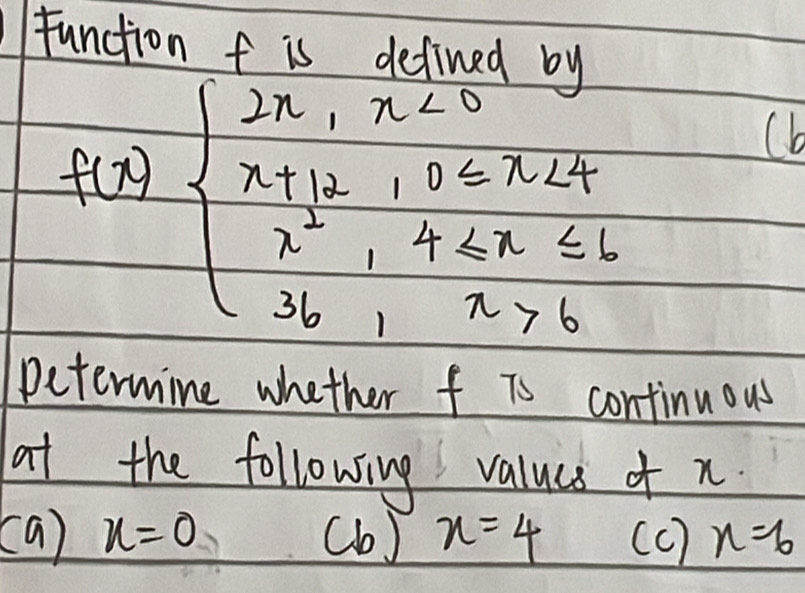 ) Function f is defined by
2x, x < 0
(b
f(x) { x+12, 0 ≤ x < 4
x², 4 ≤ x ≤ 6
36, x > 6
Determine whether f is continuous
at the following values of x.
(a) x=0 (b) x=4 (c) x=6